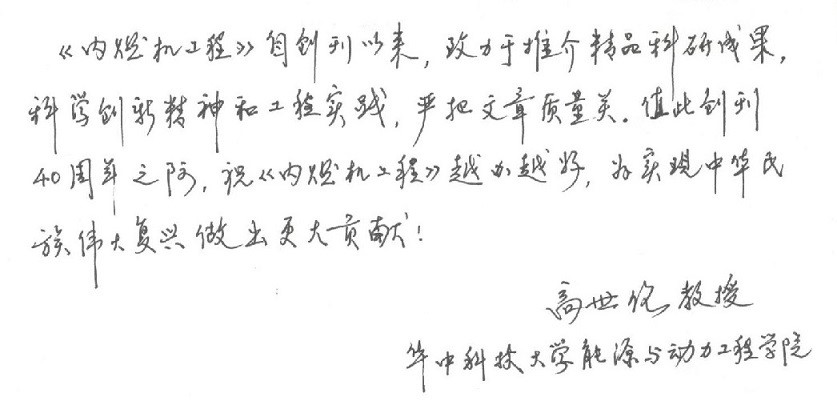 《内燃机工程》自创刊以来，致力于推介精品科研成果，
科学创新精神和工程实践，严把文章质量关。值此创刊
40周年之际，祝《内燃机工程》越办越好，为实现中华民
族伟大复兴做出更大贡献！
高世伦教授
华中科技大学能源与动力工程学院